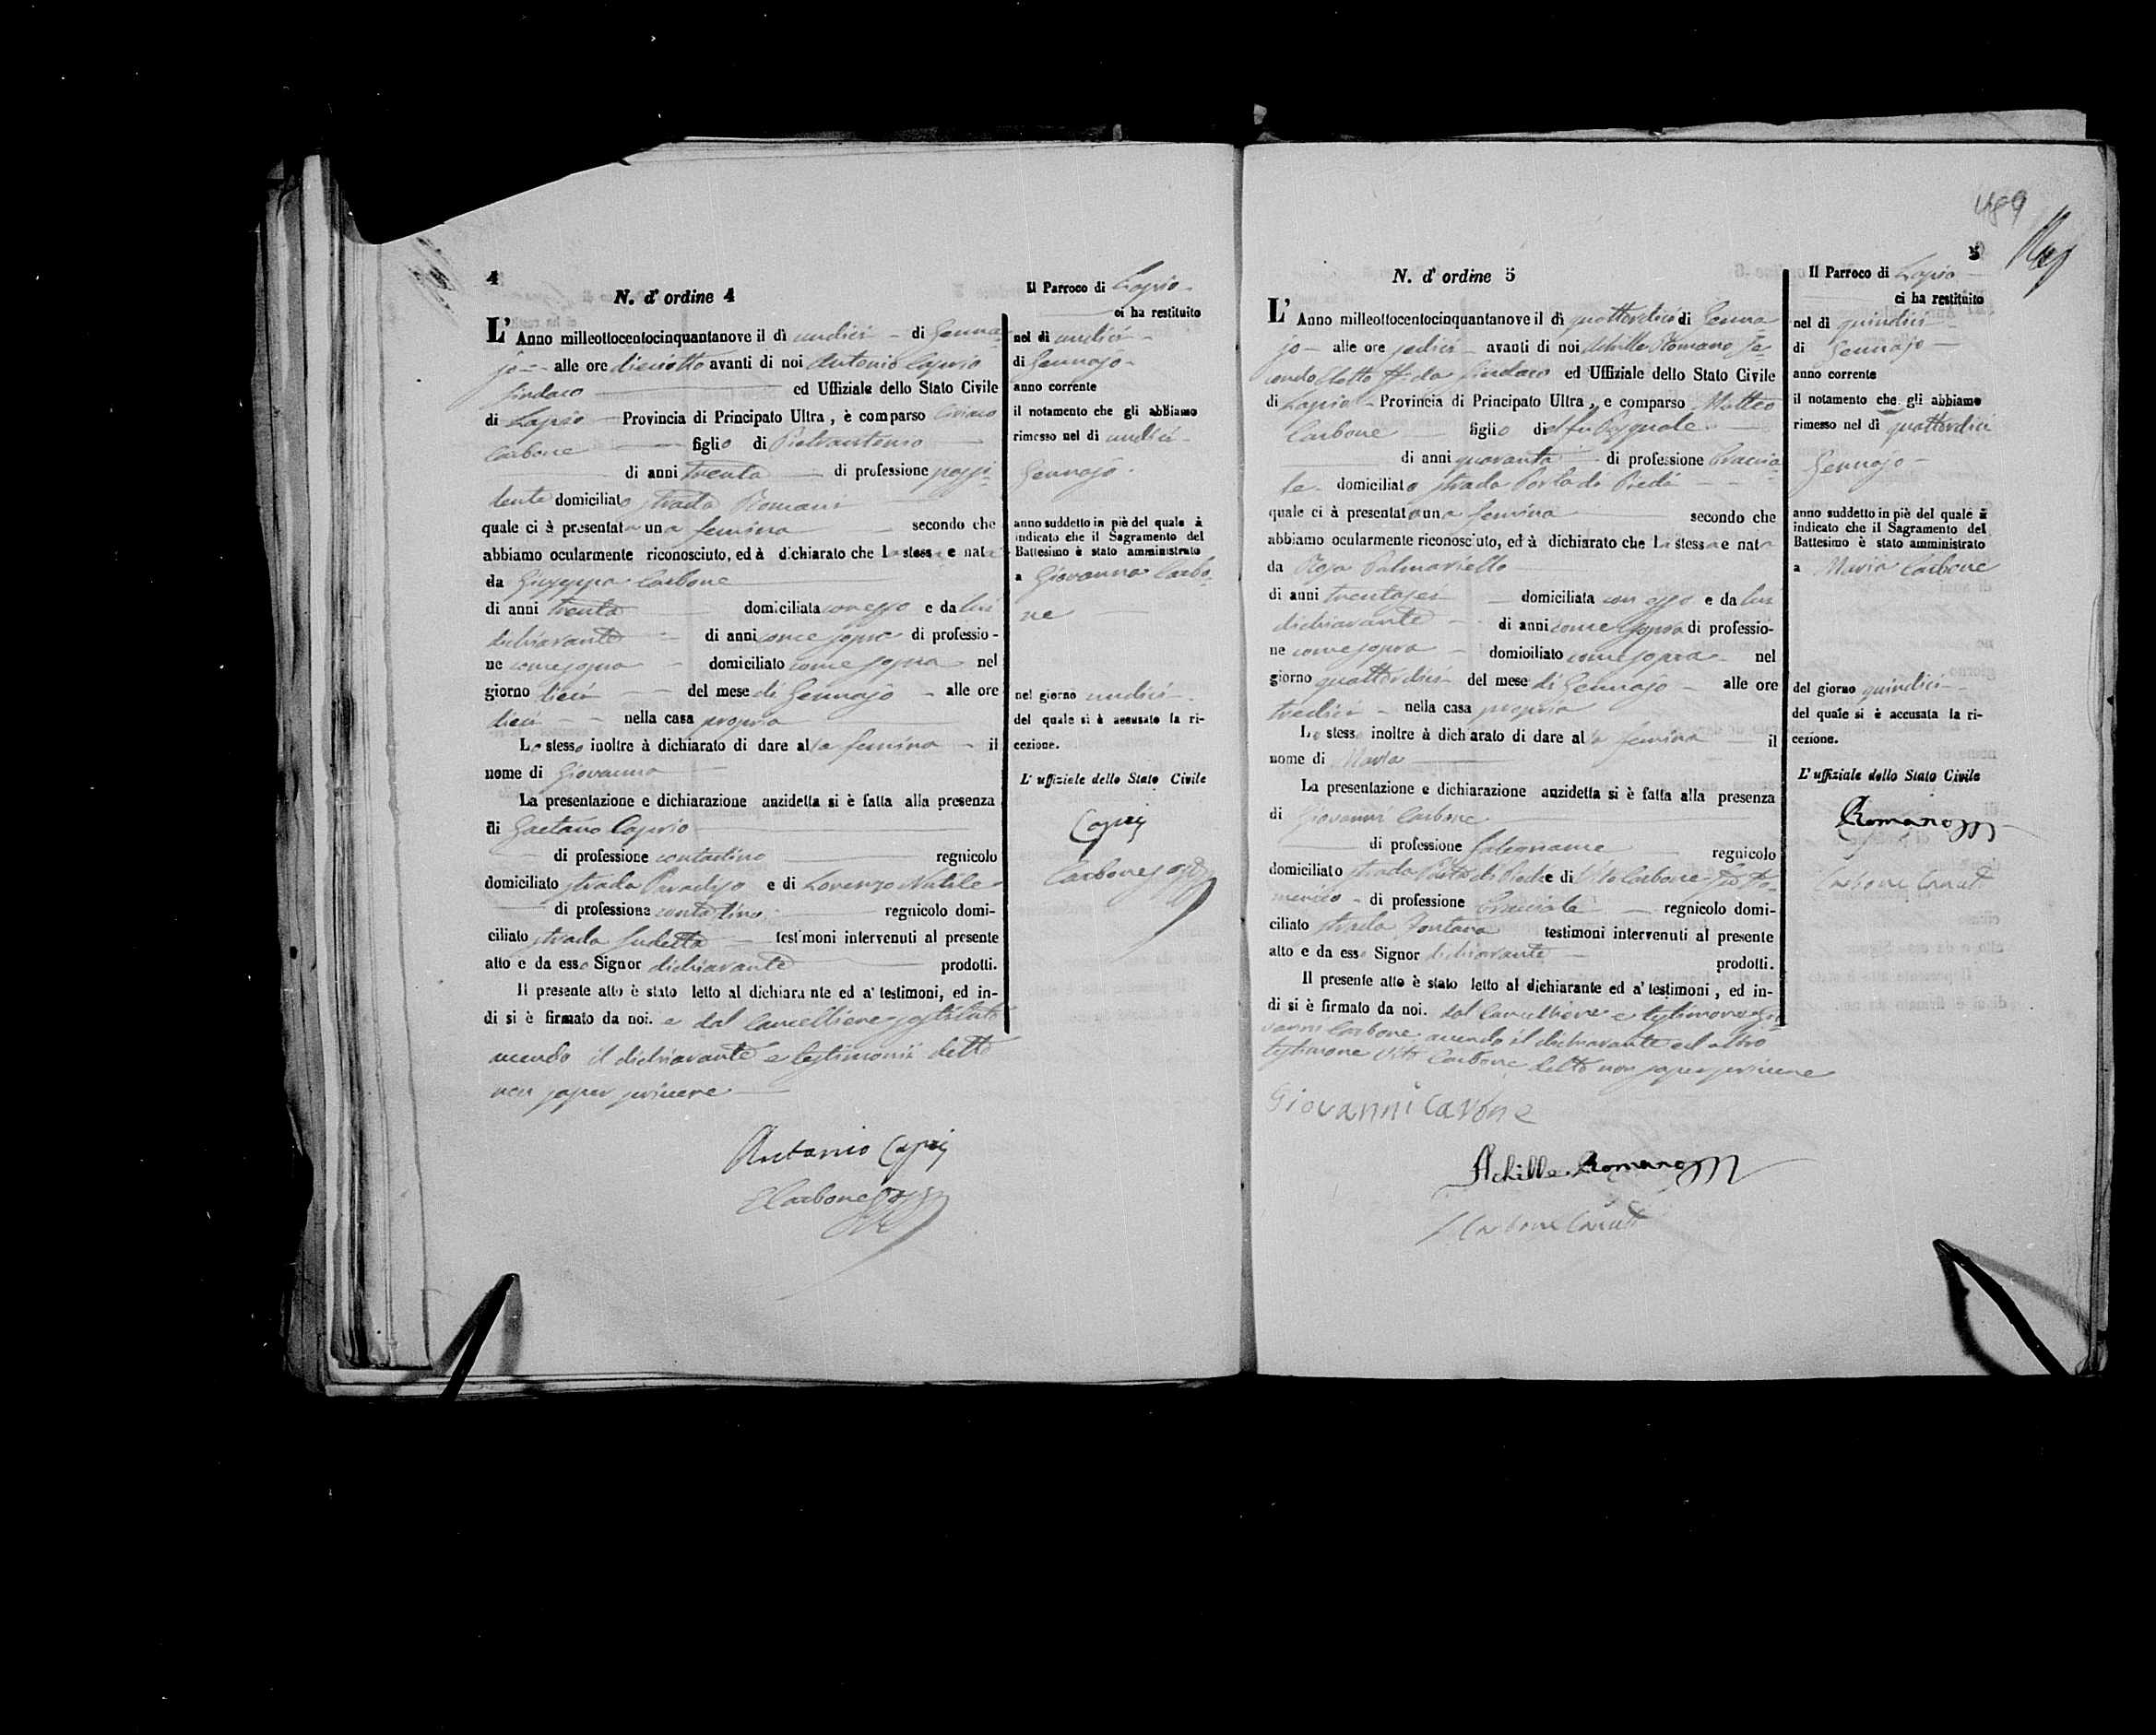 4
N. d' ordine 4
L' Anno milleottocentocinquantanove il dì undici - di Genna-
jo - alle ore dieciotto avanti di noi Antonio Caprio
Sindaco ed Uffiziale dello Stato Civile
di Lapio Provincia di Principato Ultra, è comparso
Carbone figlio di Pietrantonio
di anni trenta di professione possi-
dente domiciliato strada Romani
quale ci à presentata una femina secondo che
abbiamo ocularmente riconosciuto, ed à dichiarato che la stessa e nata
da Giuseppa Carbone
di anni trenta domiciliata con esso e da lui
dichiarante di anni come sopra di professio-
ne come sopra domiciliato come sopra nel
giorno dieci del mese di Gennajo alle ore
dieci nella casa propria
Lo stesso inoltre à dichiarato di dare alla femina il
nome di Giovanna
La presentazione e dichiarazione anzidetta si è fatta alla presenza
di Gaetano Caprio
di professione contadino regnicolo
domiciliato strada Paradiso e di Lorenzo Natale
di professione contadino regnicolo domi-
ciliato strada sudetta testimoni intervenuti al presente
atto e da esso Signor dichiarante prodotti.
Il presente atto è stato letto al dichiarante ed a' testimoni, ed in-
di si è firmato da noi. e dal Cancelliere sostituto
avendo il dichiarante e testimonii detto
non saper scrivere
Antonio Caprio
Carbone
Il Parroco di Lapio
ci ha restituito
nel dì undici
di Gennajo
anno corrente
il notamento che gli abbiamo
rimesso nel dì undici
Gennajo
anno suddetto in piè del quale à
indicato che il Sagramento del
Battesimo è stato amministrato
a Giovanna Carbo-
ne
nel giorno undici
del quale si è accusato la ri-
cezione.
L' uffiziale dello Stato Civile
Caprio
Carbone
489
5
N. d' ordine 5
L' Anno milleottocentocinquantanove il dì quattordici di Genna-
jo alle ore sedici avanti di noi Achille Romano Se-
condo Eletto ff. da Sindaco ed Uffiziale dello Stato Civile
di Lapio Provincia di Principato Ultra, e comparso Matteo
Carbone figlio del fu Pasquale
di anni quaranta di professione Braccia-
le domiciliato strada Porta di Piedi
quale ci à presentata una femina secondo che
abbiamo ocularmente riconosciuto, ed à dichiarato che la stessa e nata
da Rosa Palmariello
di anni trentasei domiciliata con esso e da lui
dichiarante di anni come sopra di professio-
ne come sopra domioiliato come sopra nel
giorno quattordici del mese di Gennajo alle ore
tredici nella casa propria
Lo stesso inoltre à dichiarato di dare alla femina il
nome di Maria
La presentazione e dichiarazione anzidetta si è fatta alla presenza
di Giovanni Carbone
di professione falegname regnicolo
domiciliato strada Porta di Piedi e di Vito Carbone di Do-
menico di professione Bracciale regnicolo domi-
ciliato strada Fontana testimoni intervenuti al presente
atto e da esso Signor dichiarante prodotti.
Il presente atto è stato letto al dichiarante ed a' testimoni, ed in-
di si è firmato da noi. dal Cancelliere e testimone Gio-
vanni Carbone avendo il dichiarante ed altro
testimone Vito Carbone detto non saper scrivere
Giovanni Carbone
Achille Romano
Carbone Canc.
Il Parroco di Lapio
ci ha restituito
nel dì quindici
di Gennajo
anno corrente
il notamento che gli abbiamo
rimesso nel dì quattordici
Gennajo
anno suddetto in piè del quale à
indicato che il Sagramento del
Battesimo è stato amministrato
a Maria Carbone
del giorno quindici
del quale si è accusata la ri-
cezione.
L' uffiziale dello Stato Civile
Romano
Carbone Canc.